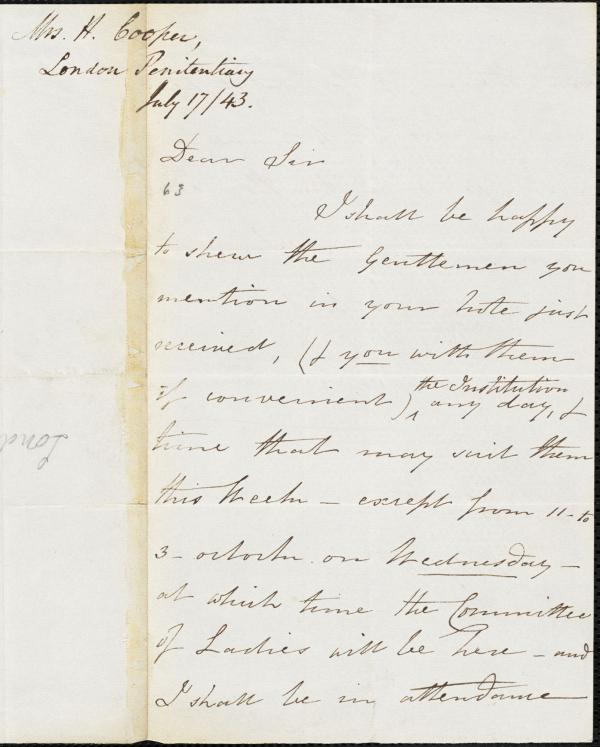 Mrs. H. Cooper,
London Penitentiary
July 17/43.
Dear Sir
63
I shall be happy
to shew the Gentlemen you
mention in your note just
received, (& you with them
if convenient) the Institution
any day, &
time that may suit them
this Week – except from 11 – to
3 – o'clock on Wednesday –
at which time the Committee
of Ladies will be here – and
I shall be in attendance
Lond